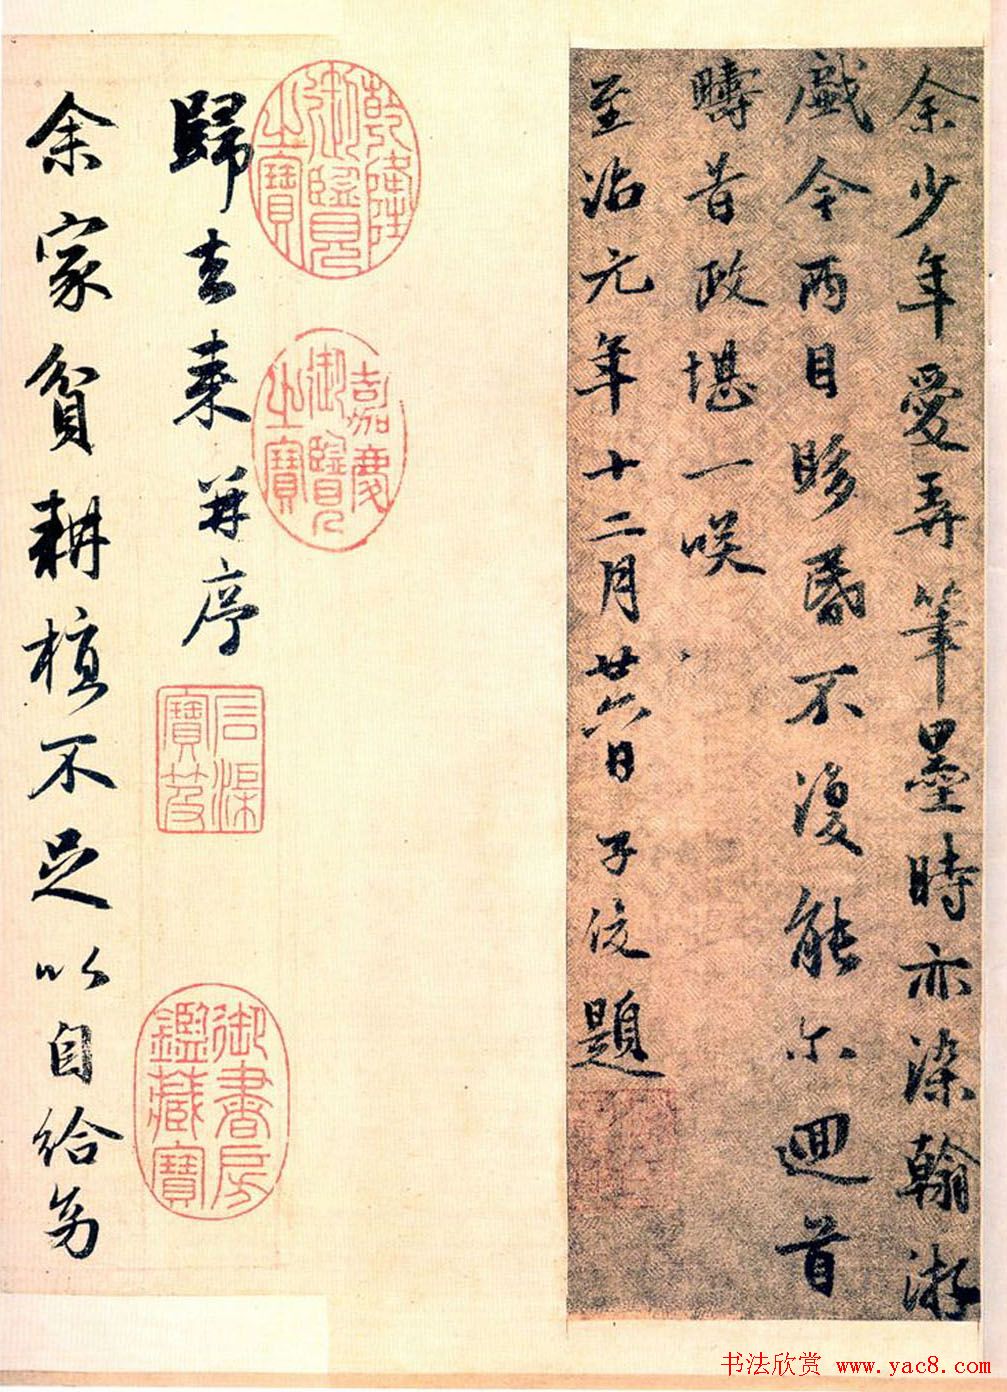 余少年愛弄筆墨時亦染翰游
戯今兩目眵昏不復能尓迴首
疇昔政堪一咲
至治元年十二月廿六日子俊題
乾隆
御覽
之寶
嘉慶
御覽
之寶
歸去来并序
石渠
寶笈
御書房
鑑藏寶
余家貧耕植不足以自給幼
书法欣赏 www.yac8.com